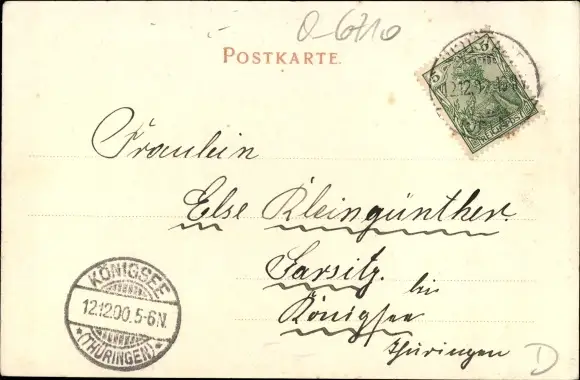 0-6710
POSTKARTE.
Fräulein
Else Kleingünther.
Garsitz. bei
Königsee
Thüringen
KÖNIGSEE
12.12.00.5-6N.
*(THÜRINGEN)*
D